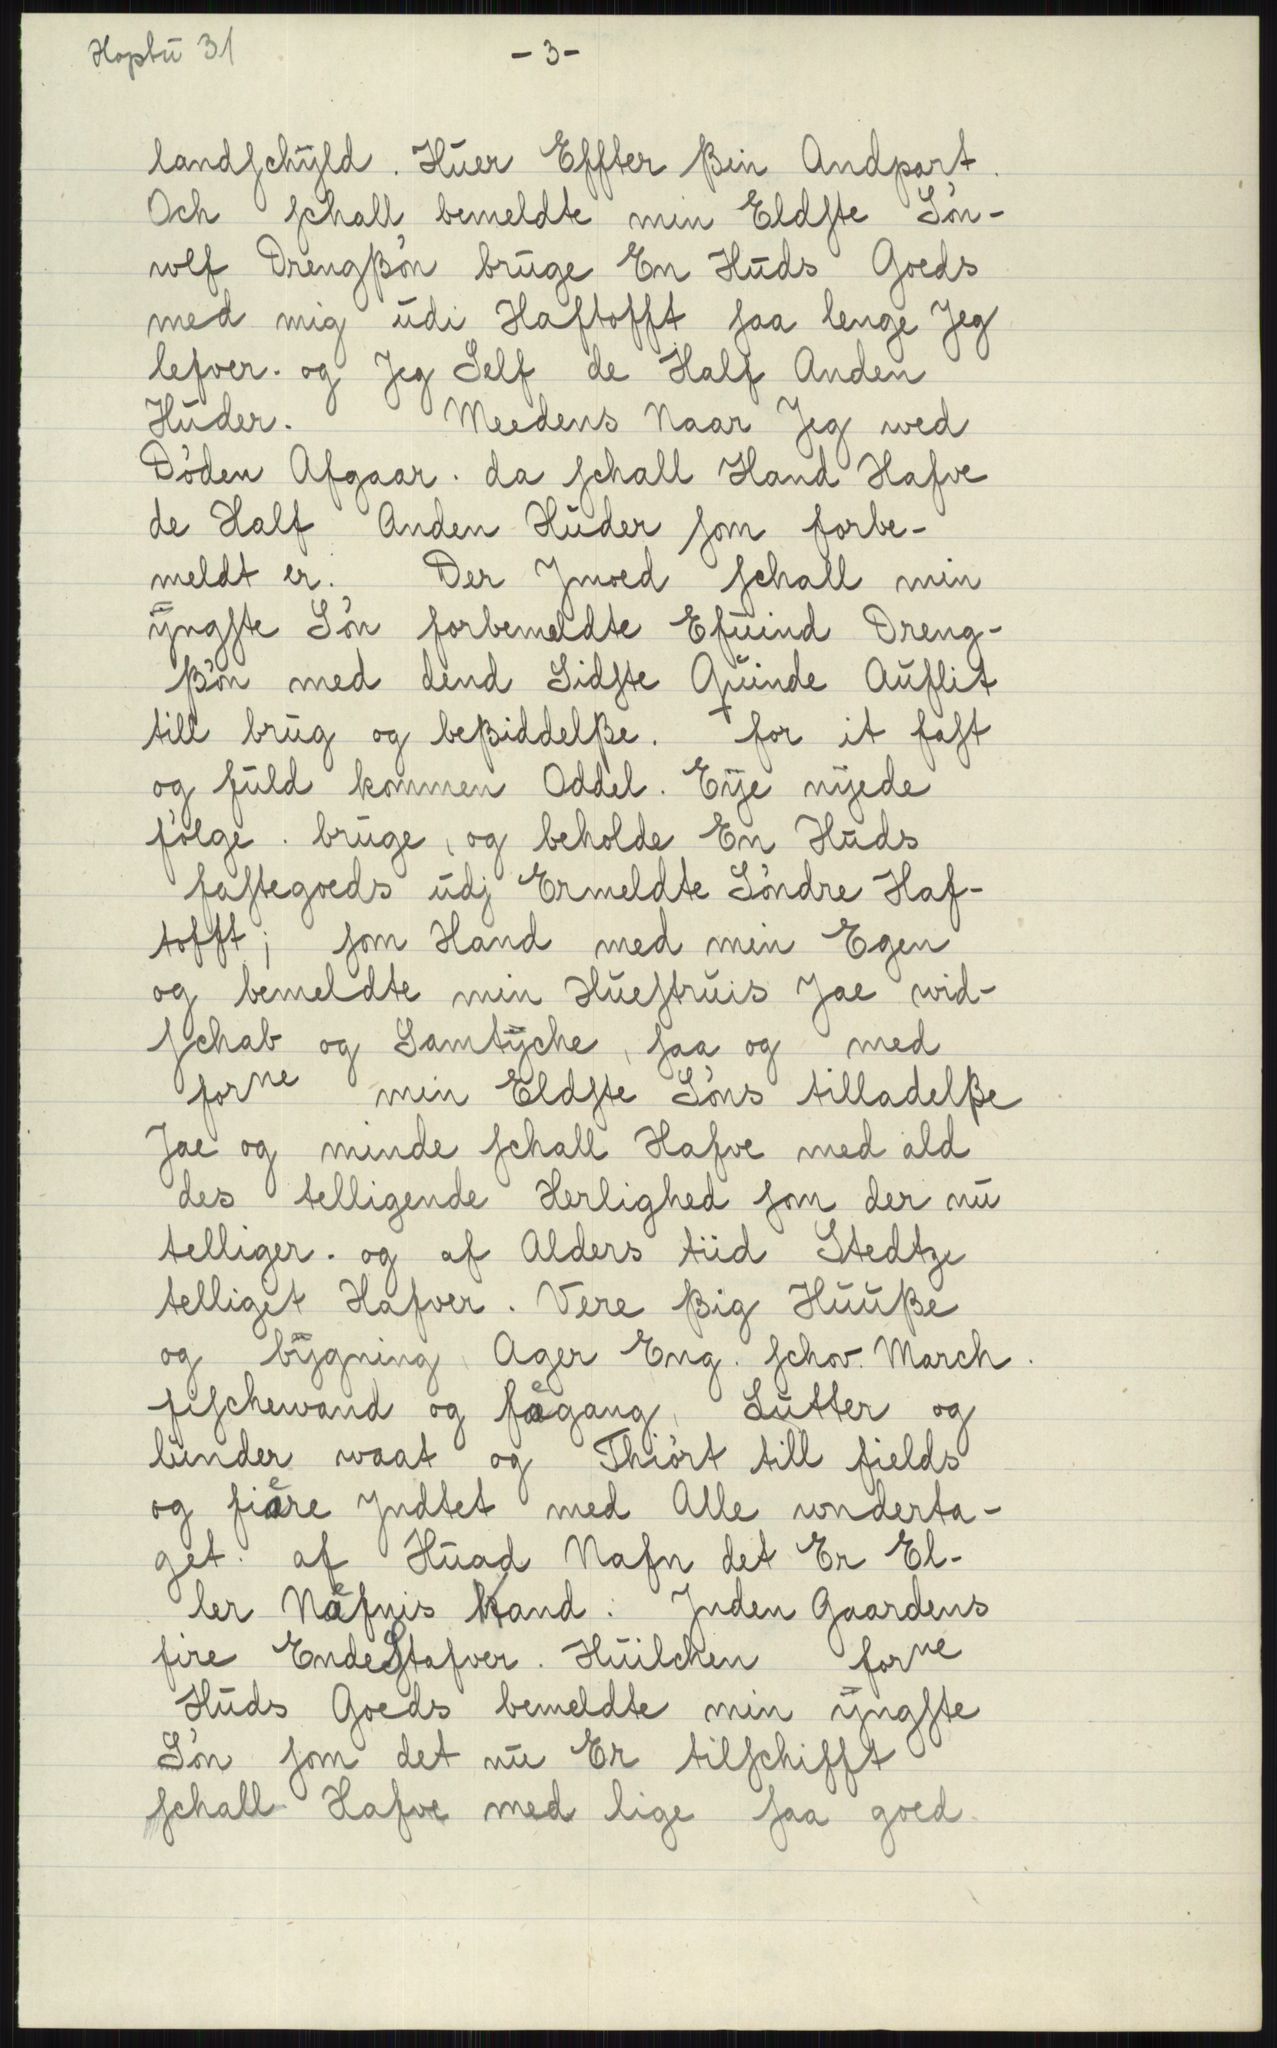 Hopbu 31
- 3 -
landschÿld. Huer Effter ßin Andpart.
Och schall bemeldte min Eldste Søn-
wlf Drengßøn bruge En Huds Goeds
med mig udi Haftofft saa lenge Jeg
lefver. og Jeg Self de Half Anden
Huder. Meedens Naar Jeg wed
Døden Afgaar. da schall Hand Hafve
de Half Anden Huder som forbe-
meldt er. Der Jmoed schall min
ÿngste Søn forbemeldte Efuind Dreng-
ßøn med dend Sidste Quinde Auflit
till brug og beßiddelße. for it fast
og fuld kommen Oddel. Eÿe nÿede
følge. bruge, og beholde En Huds
fastegoeds udj Ermeldte Søndre Haf-
tofft; som Hand med min Egen
og bemeldte min Huestruis Jae wid-
schab og Samtÿche, saa og med
forne min Eldste Søns tilladelße
Jae og minde schall Hafve med ald
des telligende Herlighed som der nu
telliger. og af Alders tiid Stedtze
telliget Hafver. Vere ßig Huuße
og bÿgning, Ager Eng. schov. March.
fischewand og fægang, Lutter og
lunder waat og Thiørt till fields
og fiære Jndtet med Alle wnderta-
get. af Huad Nafn det Er El-
ler Næfnis kand. Jnden Gaardens
fire EndeStafver. Huilchen forne
Huds Goeds bemeldte min ÿngste
Søn som det nu Er tilschifft
schall Hafve med lige saa goed